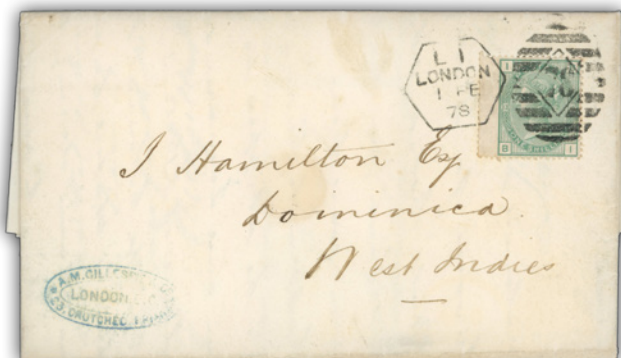 L 1
LONDON
1 FE
78
I B
ONE SHILLING
B I
J Hamilton Esq
Dominica.
West Indies
A.M. GILLESPIE & CO
LONDON
CRUTCHED FRIARS